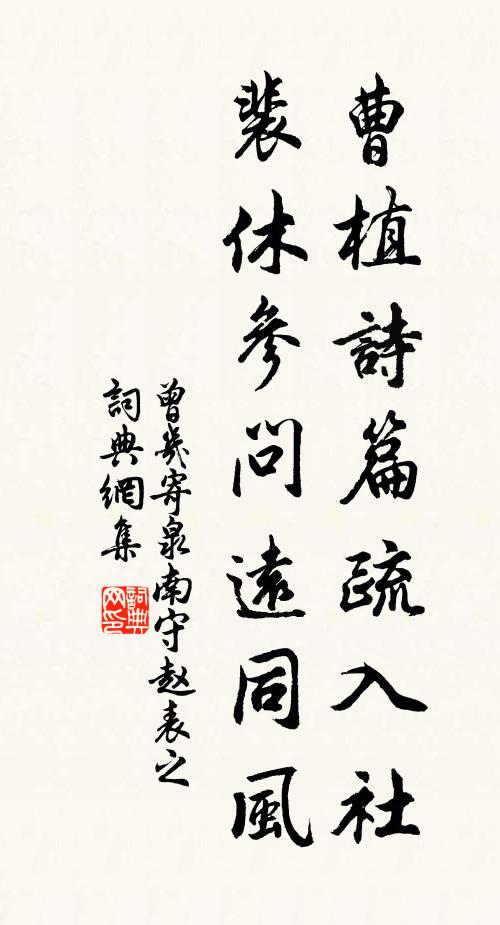 曹植詩篇疏入社
裴休參問遠同風
曾幾寄泉南守赵表之
詞典網集
詞典网印